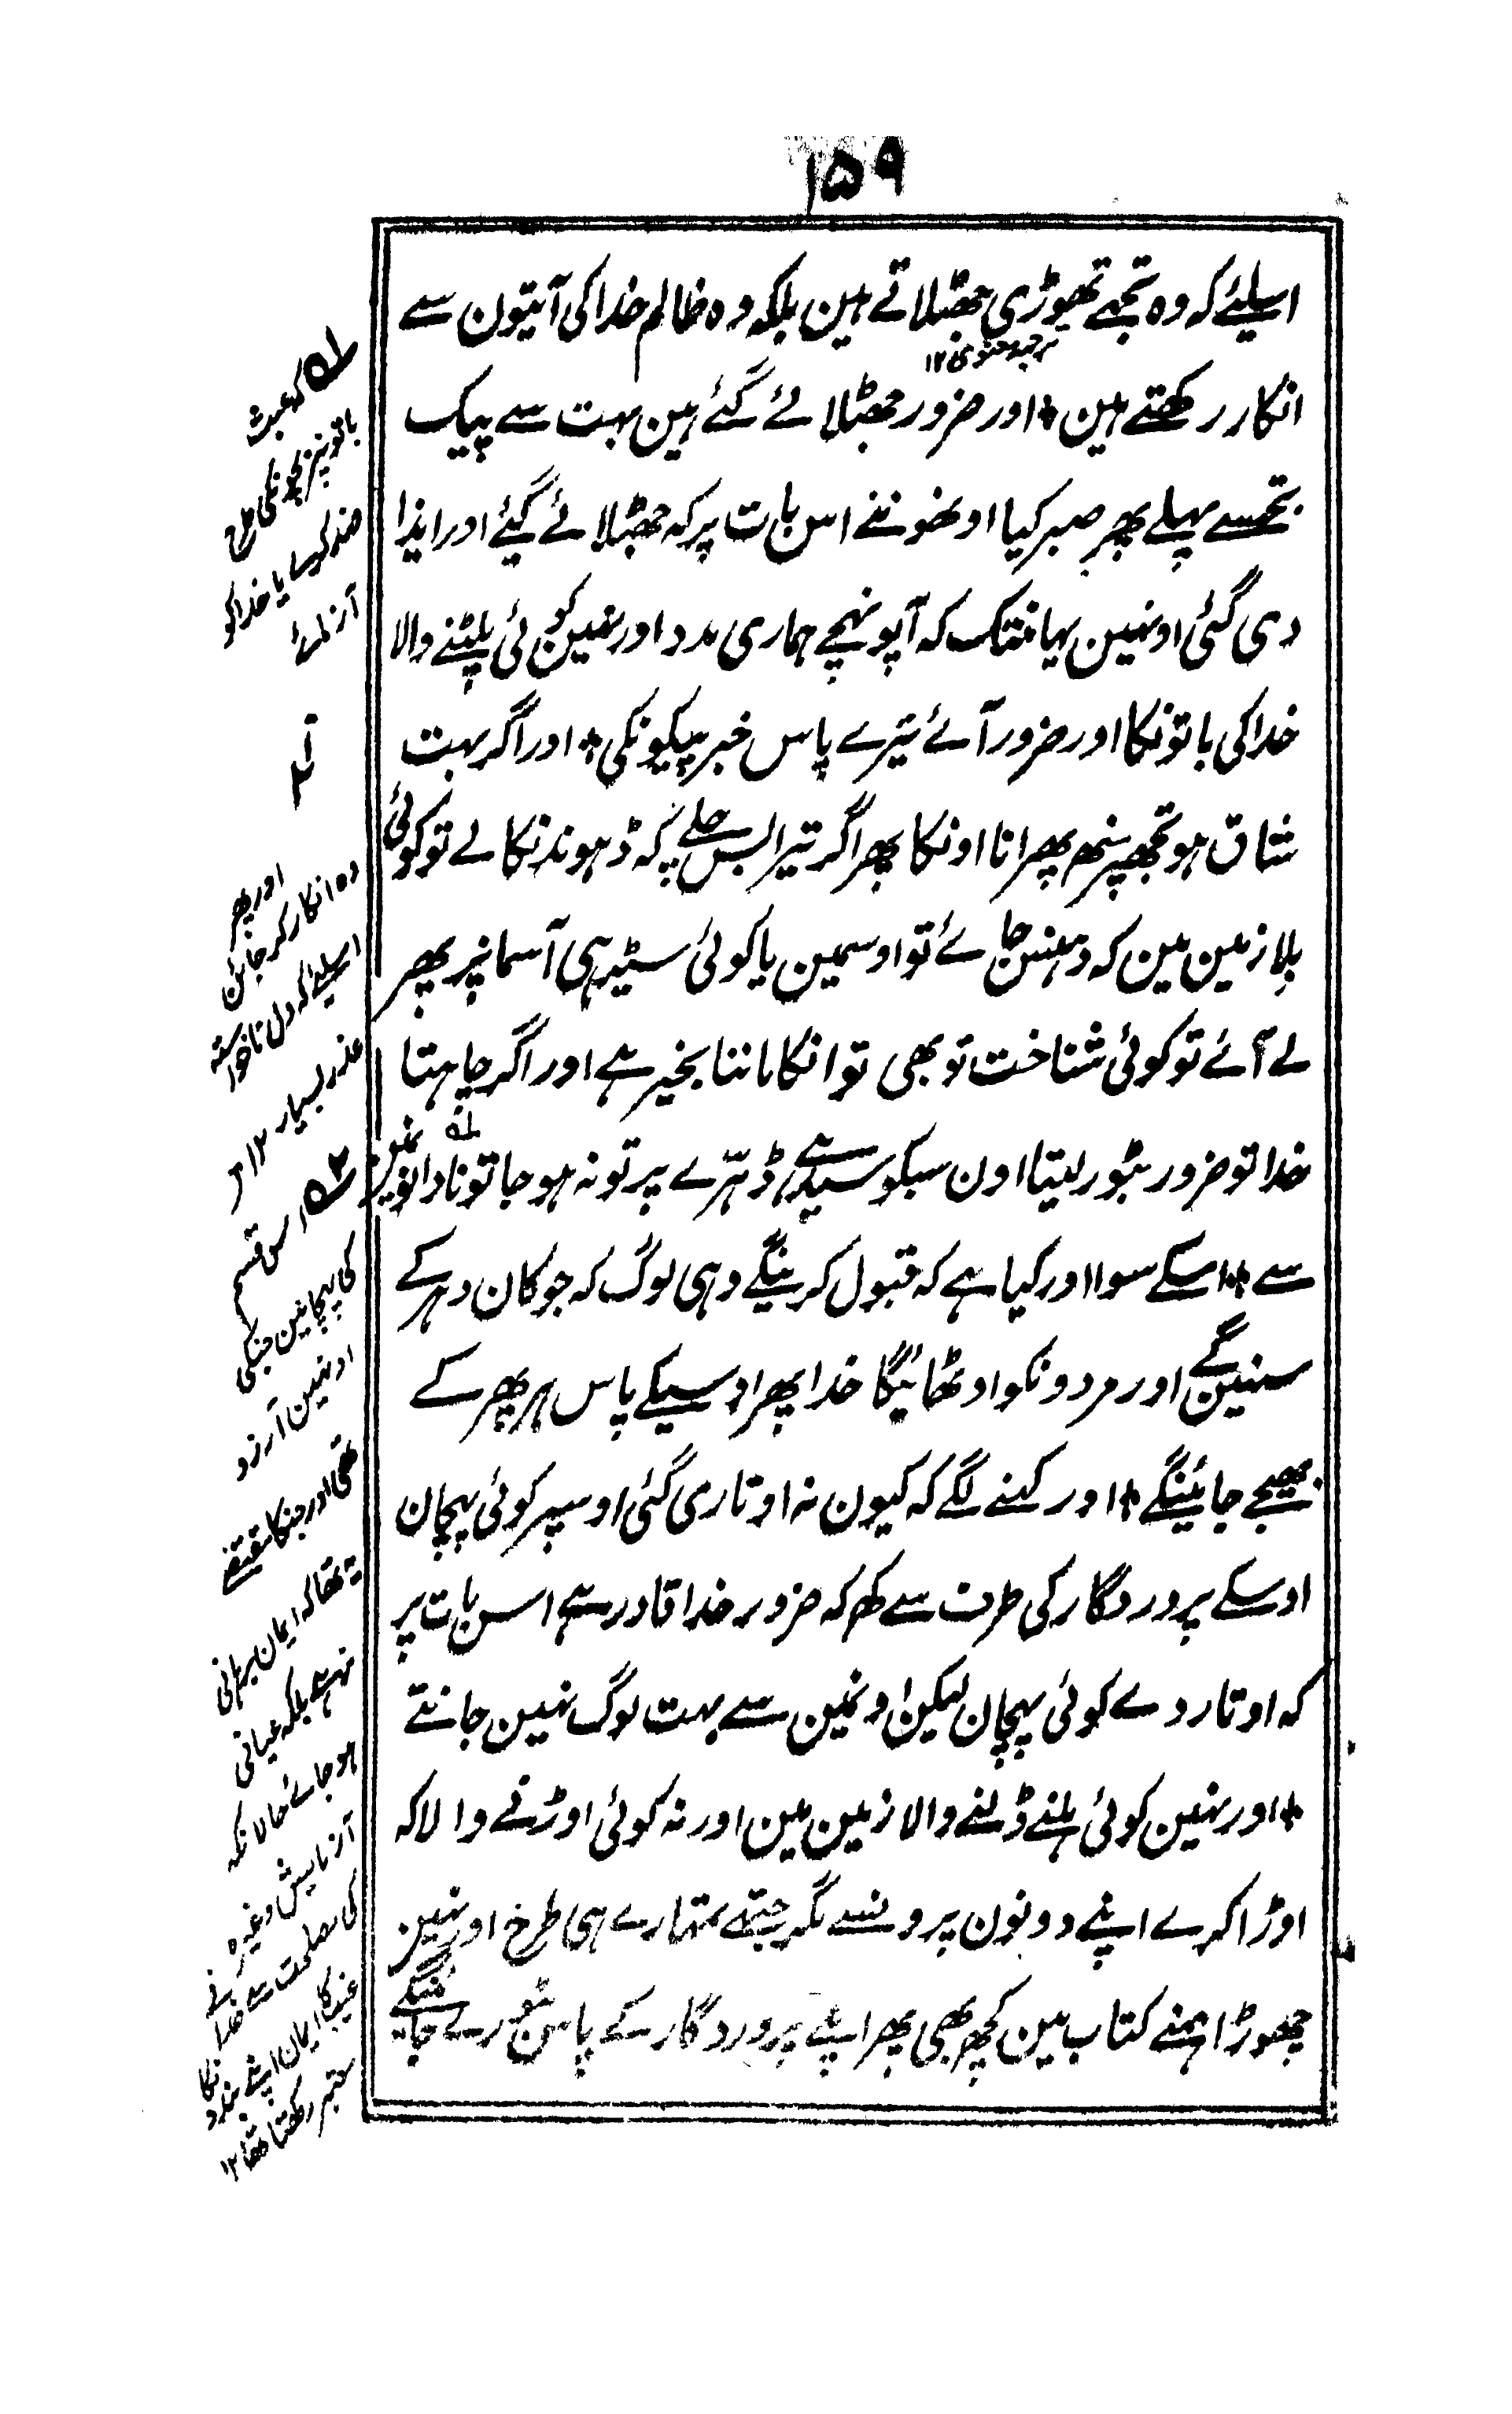 ۱۵۹
اسلیئے کہ وہ تجھے تھوڑی جھٹلاتے ہین بلکہ وہ ظالم خدا کی آیتون سے
انکار رکھتے ہین * اور ضرور جھٹلائے گئے ہین بہت سے پیک
تجھسے پہلے پھر صبر کیا اونھونے اس بات پر کہ جھٹلائے گیئے اور ایذا
دی گئی اونہین یہانتک کہ آپونہچے ہماری مدد اور نہین کوئی پلٹنے والا
خدا کی باتونکا اور ضرور آئے تیرے پاس خبر پیکونکی * اور اگر بہت
شاق ہو تجھپر منھ پھرانا اونکا پھر اگر تیرا بس چلے کہ ڈہونڈ نکالے تو کوئی
بلا زمین مین کہ دہنس جائے تو اوسمین یا کوئی سیڑہی آسمانپر پھر
لے آئے تو کوئی شناخت تو بھی تو انکا ماننا بخیر ہے اور اگر چاہتا
خدا تو ضرور بٹور لیتا اون سبکو سیدہے ڈہرّے پر تو نہ ہو جا تو نادانونمین
سے * اسکے سوا اور کیا ہے کہ قبول کرینگے وہی لوگ کہ جو کان دہر کے
سنینگے اور مردونکو اوٹھائیگا خدا پھر اوسیکے پاس ہر پھر کے
بھیجے جائینگے * اور کہنے لگے کہ کیون نہ اوتاری گئی اوسپر کوئی پہچان
اوسکے پروردگار کی طرف سے کھ کہ ضرور خدا قادر ہے اس بات پر
کہ اوتار دے کوئی پہچان لیکن اونمین سے بہت لوگ نہین جانتے
* اور نہین کوئی ہلنے ڈلنے والا زمین مین اور نہ کوئی اوڑنے والا کہ
اوڑا کرے اپنے دونون پرونسے مگر جتھے تمھارے ہی طرح اور نہین
چھوڑا ہمنے کتاب مین کچھ بھی پھر اپنے پروردگار کے پاس بٹورے جائینگے
کہ عبث
باتونپر بچونکی طرح
ضد کرے یا خدا کو
آزمائے
اور پھر
وہ انکار کر جائین
اسلیئے کہ دل ناخواستہ
عذر بسیار ۱۲
اس قسم
کی پہچانین جنکی
اونہین آرزو
تھی اور جنکا مقتضے
یہ تھا کہ ایمان برہانی
نرہے بلکہ عیانی
ہو جائے حالانکہ
آزمایش وغیرہ
کی مصلحت سے خدا نے
غیب کا ایمان اپنے بندونکا
معتبر رکھا تھا ۱۲